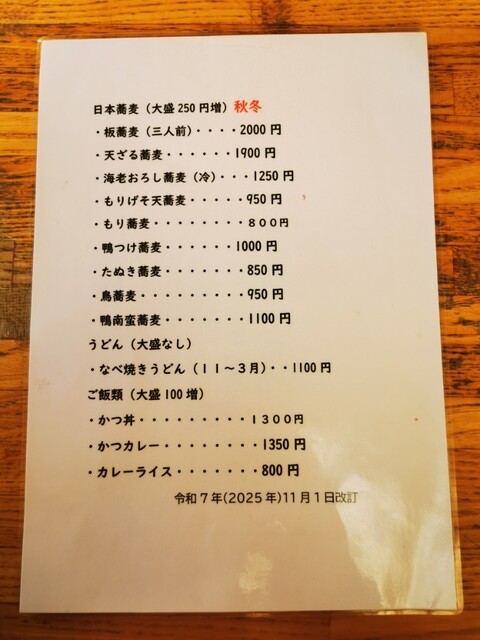 日本蕎麦（大盛250円増）秋冬
・板蕎麦（三人前）・・・・2000円
・天ざる蕎麦・・・・・・1900円
・海老おろし蕎麦（冷）・・・1250円
・もりげそ天蕎麦・・・・・950円
・もり蕎麦・・・・・・・・８００円
・鴨つけ蕎麦・・・・・・1000円
・たぬき蕎麦・・・・・・・850円
・鳥蕎麦・・・・・・・・・950円
・鴨南蛮蕎麦・・・・・・・1100円
うどん（大盛なし）
・なべ焼きうどん（１１～３月）・・1100円
ご飯類（大盛100増）
・かつ丼・・・・・・・・・１３００円
・かつカレー・・・・・・・・1350円
・カレーライス・・・・・・・800円
令和７年(2025年)11月１日改訂